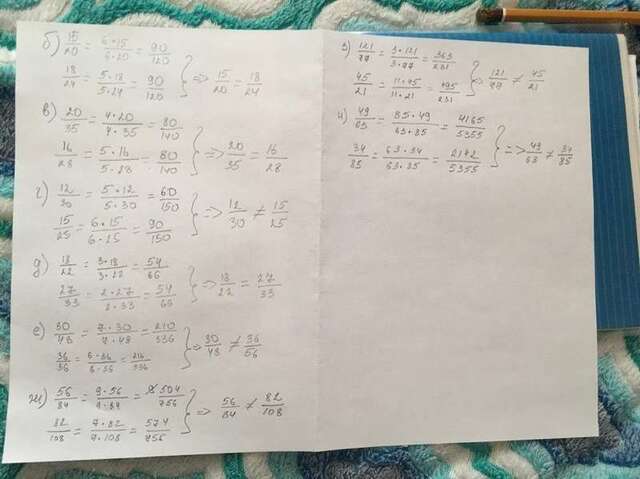 б) 15/20 = 6·15/6·20 = 90/120
18/24 = 5·18/5·24 = 90/120 } => 15/20 = 18/24
в) 20/35 = 4·20/4·35 = 80/140
16/28 = 5·16/5·28 = 80/140 } => 20/35 = 16/28
г) 12/30 = 5·12/5·30 = 60/150
15/25 = 6·15/6·25 = 90/150 } => 12/30 ≠ 15/25
д) 18/22 = 3·18/3·22 = 54/66
27/33 = 2·27/2·33 = 54/66 } => 18/22 = 27/33
е) 30/48 = 7·30/7·48 = 210/336
36/56 = 6·36/6·56 = 216/336 } => 30/48 ≠ 36/56
ж) 56/84 = 9·56/9·84 = 504/756
82/108 = 7·82/7·108 = 574/756 } => 56/84 ≠ 82/108
з) 121/77 = 3·121/3·77 = 363/231
45/21 = 11·45/11·21 = 495/231 } => 121/77 ≠ 45/21
и) 49/63 = 85·49/63·85 = 4165/5355
34/85 = 63·34/63·85 = 2142/5355 } => 49/63 ≠ 34/85